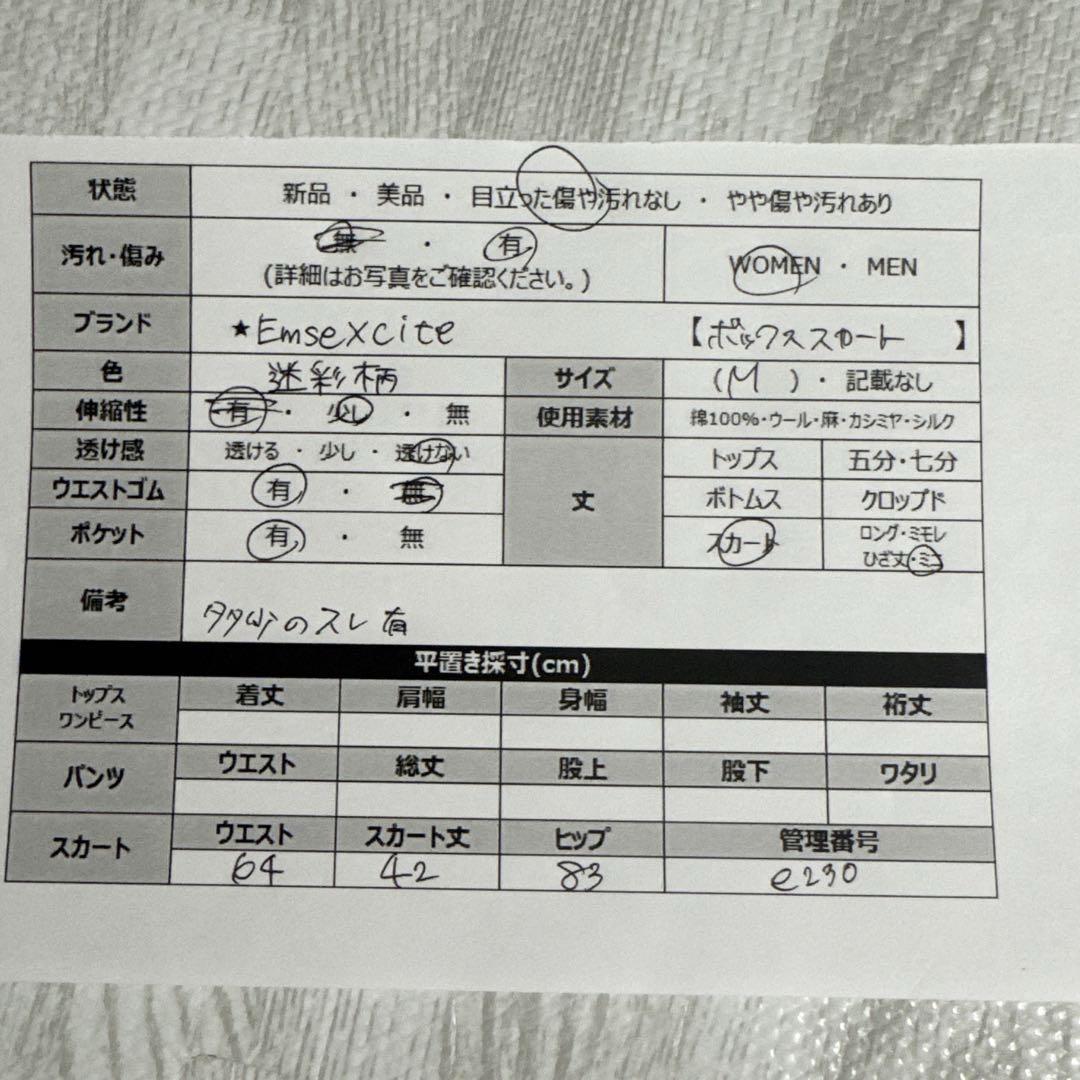 状態 新品 ・ 美品 ・ 目立った傷や汚れなし ・ やや傷や汚れあり
汚れ・傷み 無 ・ 有 WOMEN ・ MEN
(詳細はお写真をご確認ください。)
ブランド ★Emsexcite 【ボックススカート 】
色 迷彩柄 サイズ (M )・記載なし
伸縮性 有 ・ 少し ・ 無 使用素材 綿100%・ウール・麻・カシミヤ・シルク
透け感 透ける ・ 少し ・ 透けない 丈 トップス 五分・七分
ウエストゴム 有 ・ 無 ボトムス クロップド
ポケット 有 ・ 無 スカート ロング・ミモレ
ひざ丈・ミニ
備考 のスレ有
平置き採寸(cm)
トップス
ワンピース 着丈 肩幅 身幅 袖丈 裄丈
パンツ ウエスト 総丈 股上 股下 ワタリ
スカート ウエスト スカート丈 ヒップ 管理番号
64 42 83 e230